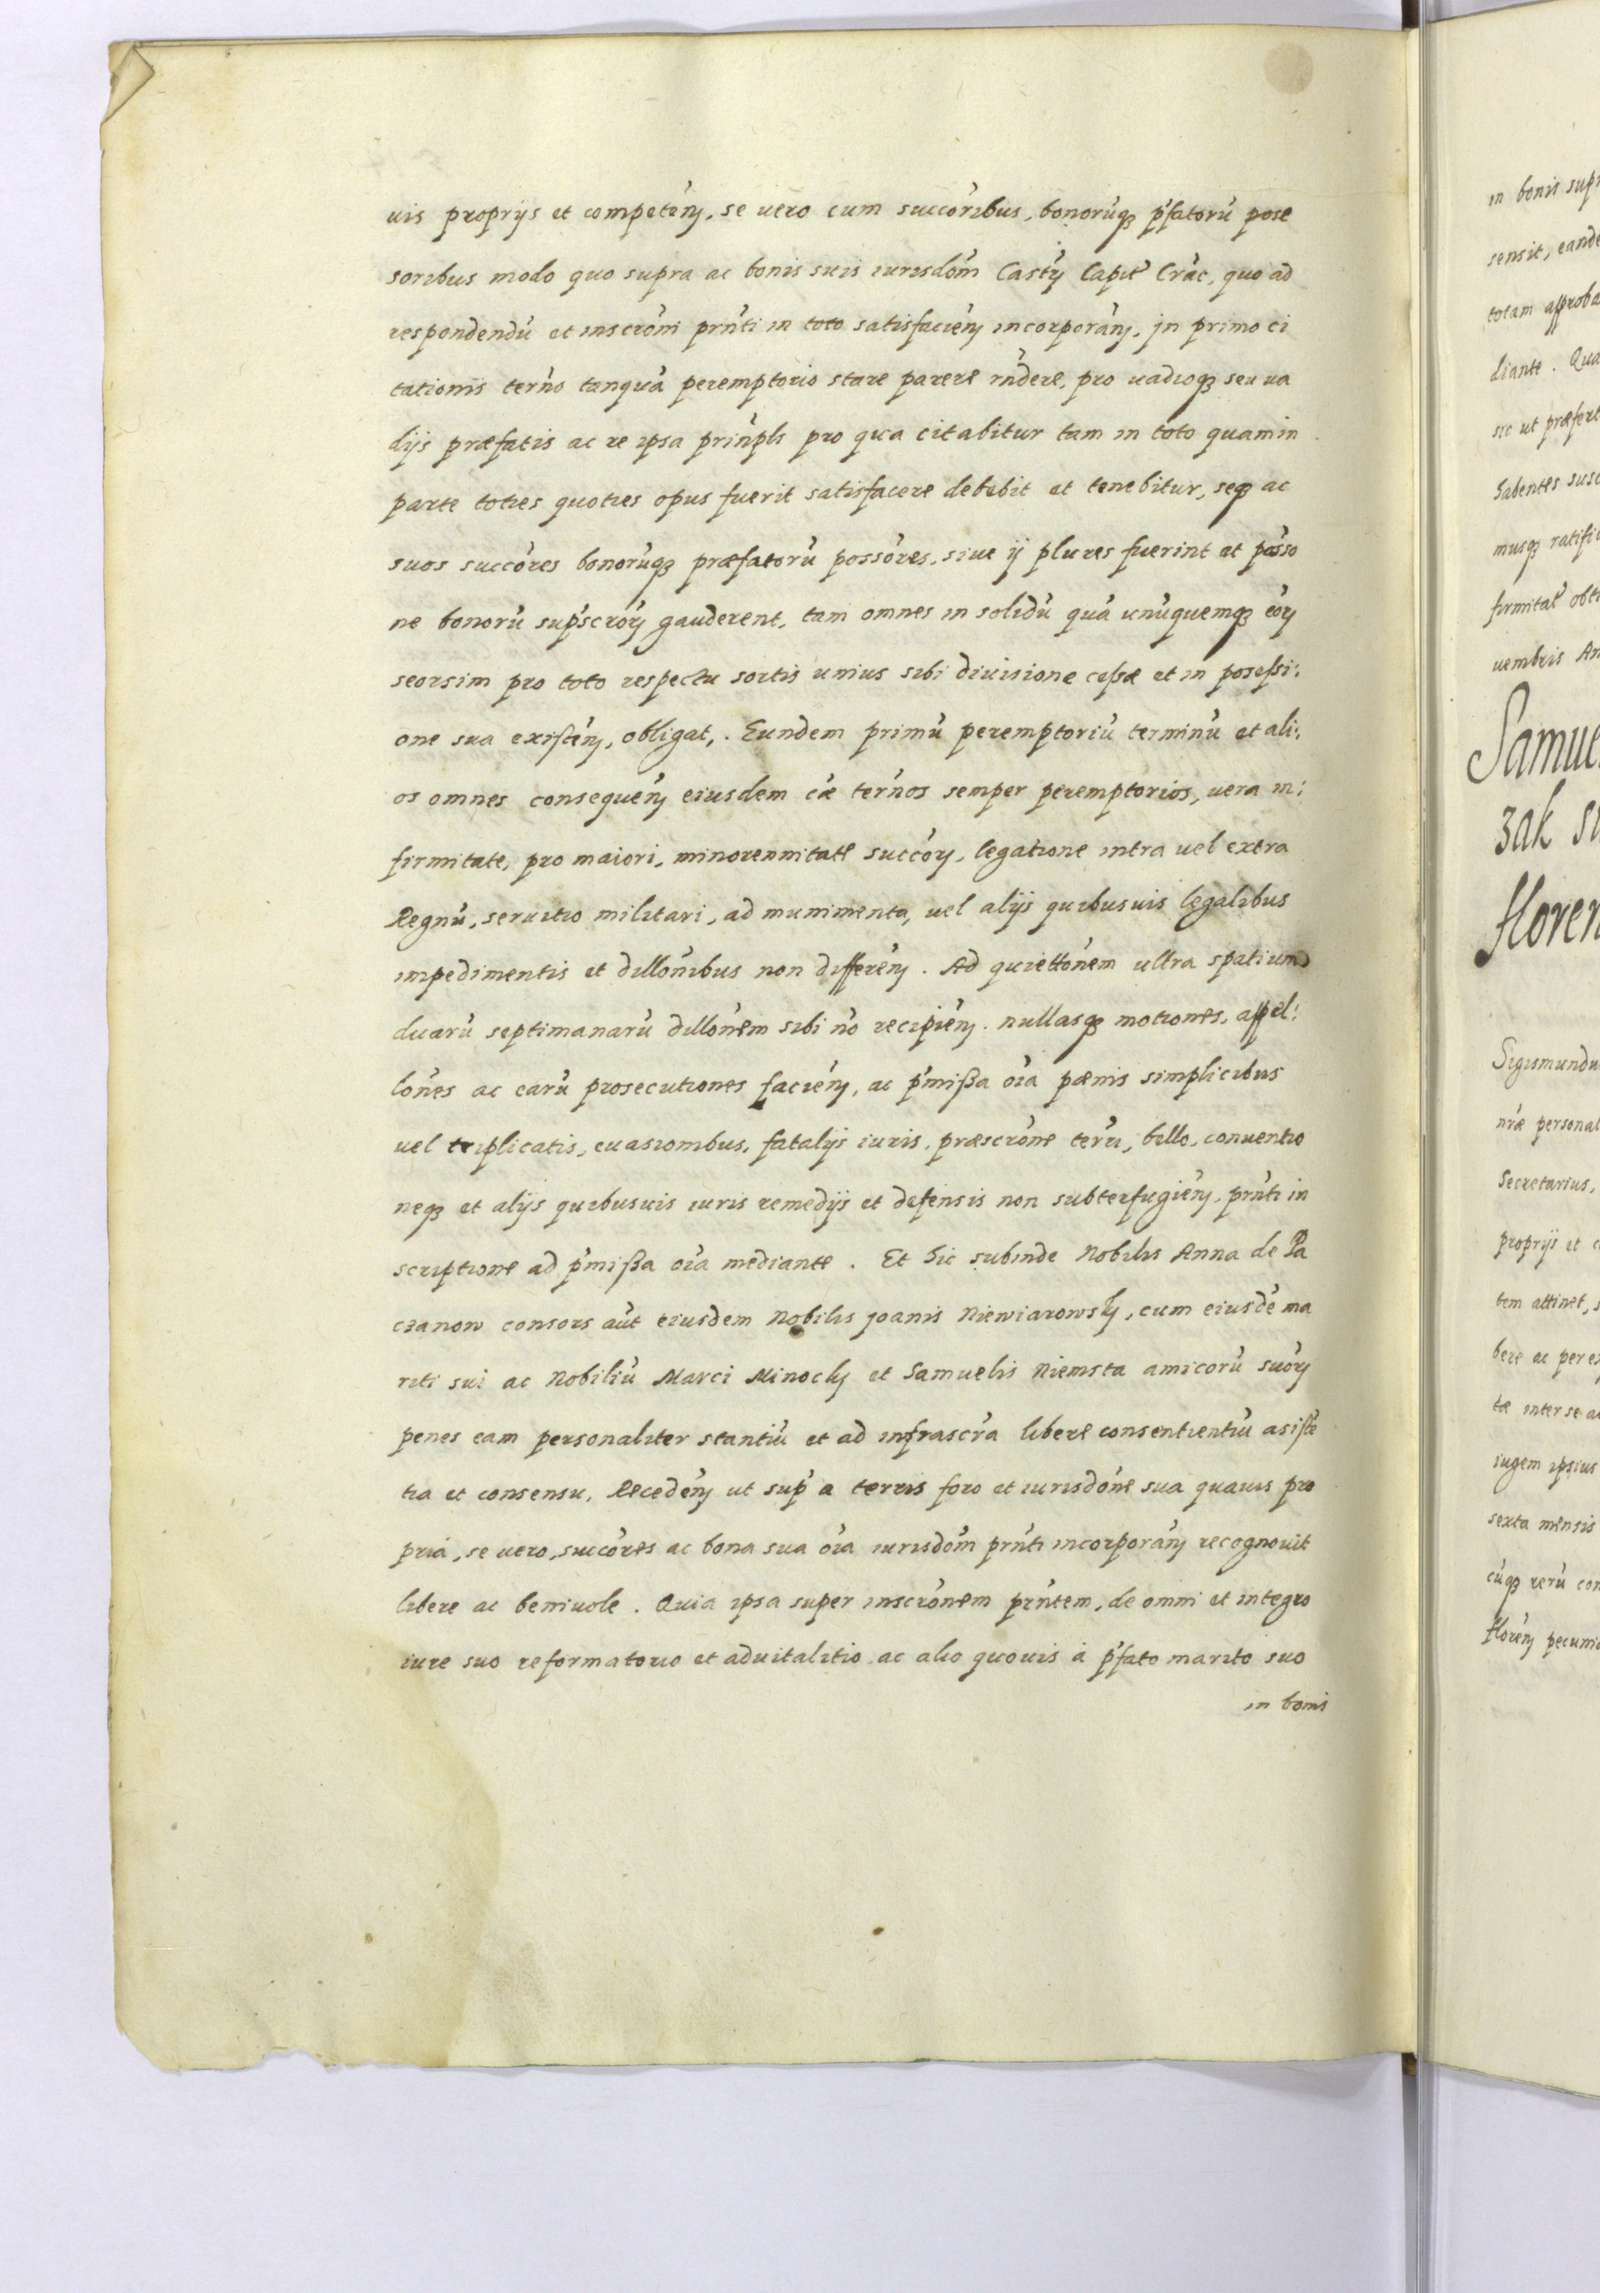 uis proprijs et competen̄, se uero cum succoribus, bonorūq3 p̄fatorū pose
soribus modo quo supra ac bonis suis iurisdom̄ Castrn̄ Capit̄ Crac̄, quo ad
respondendū et inscroni prn̄ti in toto satisfacien̄ incorporan̄. Jn primo ci
tationis ter̄no tanquā peremptorio stare parere rn̄dere, pro uadioq3 seu ua
dijs præfatis ac re ipsa prin̄pls pro qua citabitur tam in toto quam in
parte toties quoties opus fuerit satisfacere debebit et tenebitur, seq3 ac
suos succores bonorūq3 præfatorū possores, siue ij plures fuerint et posso
ne bonorū supscror̄ gauderent, tam omnes in solidū quā unūquemq3 eor̄
seorsim pro toto respectu sortis unius sibi diuisione cessæ et in posessi:
one sua existen̄, obligat. Eundem primū peremptoriū terminū et ali:
os omnes consequen̄ eiusdem cæ ter̄nos semper peremptorios, uera in:
firmitate, pro maiori, minorennitate succor̄, legatione intra uel extra
Regnū, seruitio militari, ad munimenta, uel alijs quibusuis legalibus
impedimentis et dillonibus non differen̄. Ad quiettonem ultra spatium
duarū septimanarū dillonem sibi nō recipien̄. nullasq3 motiones, appel:
lones ac earū prosecutiones facien̄, ac p̄missa oīa pænis simplicibus
uel triplicatis, euasionibus, fatalijs iuris, præscrone terr̄i, bello, conuentio
neq3 et alijs quibusuis iuris remedijs et defensis non subterfugien̄, prn̄ti in
scriptione ad p̄missa oīa mediante. Et hic subinde Nobilis Anna de Pa
czanow consors aūt eiusdem Nobilis Joanis Niewiarowsky, cum eiusdē ma
riti sui ac Nobiliū Marci Minocky et Samuelis Niemsta amicorū suor̄
penes eam personaliter stantiū et ad infrascrā libere consentientiū asistē
tia et consensu, Receden̄ ut sup̄ a terris foro et iurisdone sua quauis pro
pria, se uero, succores ac bona sua oīa iurisdom̄ prn̄ti incorporan̄ recognouit
libere ac beniuole. Quia ipsa super inscronem prn̄tem, de omni et integro
iure suo reformatorio et aduitalitio ac alio quouis à p̄fato marito suo
in bonis
in bonis
sensit,
totam
diante. Qua
sic ut præfert
habentes
musq3
firmitat̄
uembris An
Samue
zak
floren
Sigismundu
nræ personal
Secretarius,
proprijs et
tem attinet,
bere ac
tæ inter se
iugem ipsius
sexta mensis
cūq3 rerū con
floren̄ pecuniæ